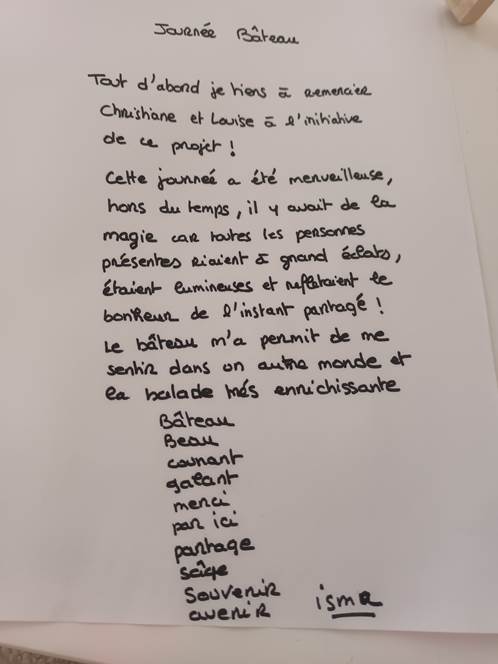 Journée Bâteau
Tout d'abord je tiens à remercier
Christiane et Louise à l'initiative
de ce projet !
Cette journeé a été merveilleuse,
hors du temps, il y avait de la
magie car toutes les personnes
présentes riaient à grand éclats,
étaient lumineuses et reflétaient le
bonheur de l'instant partagé !
Le bâteau m'a permit de me
sentir dans un autre monde et
la balade très enrichissante
Bâteau
Beau
courant
galant
merci
par ici
partage
Souvenir
avenir
isma